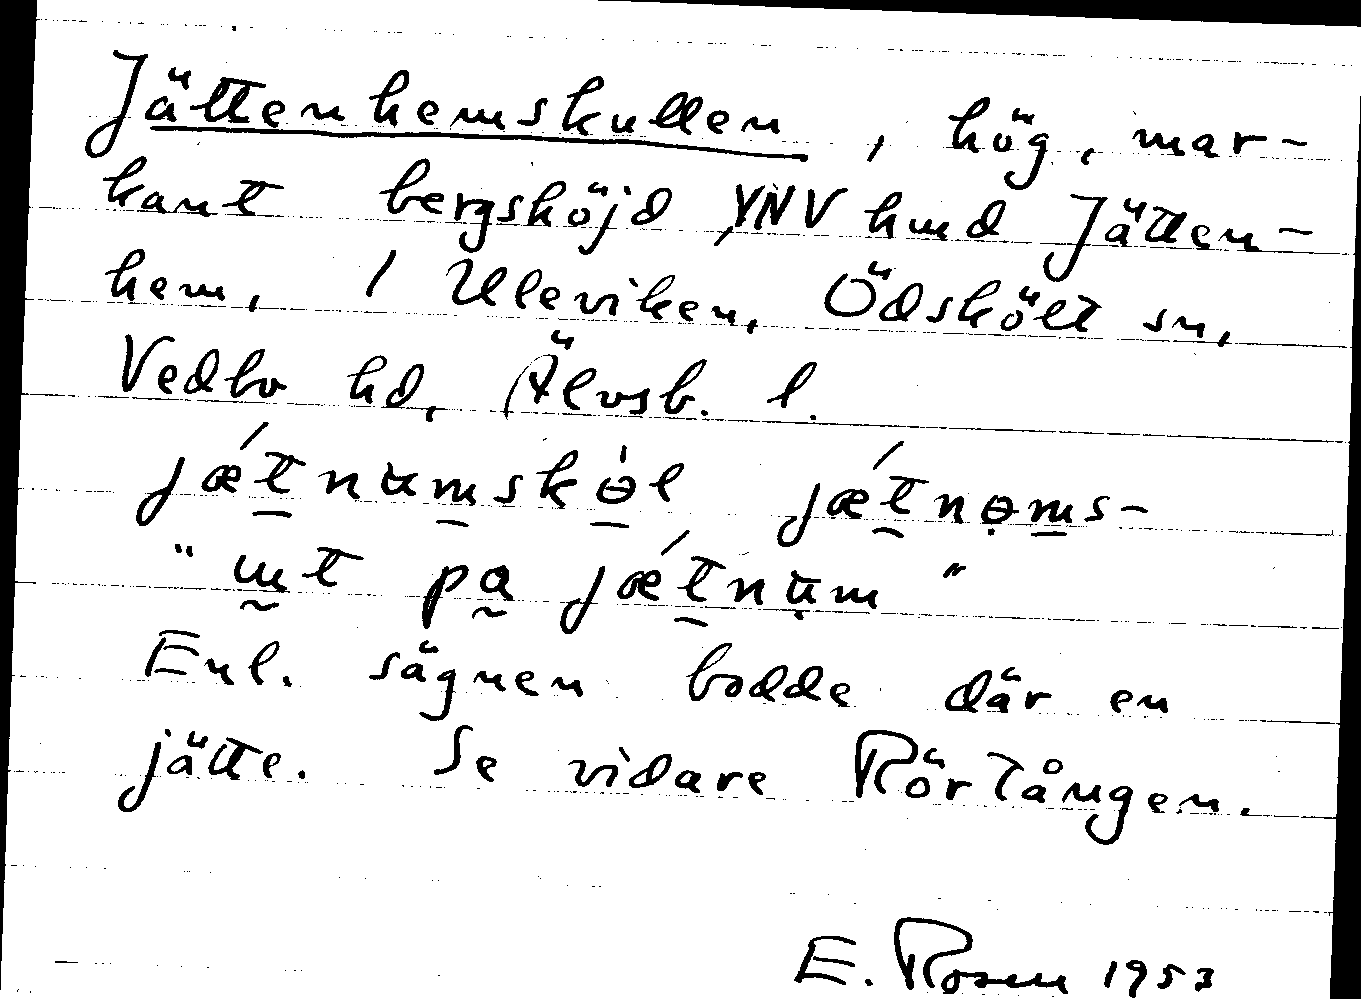 Jättenhemskullen, hög, mar-
kant bergshöjd VNV hmd Jätten-
hem, 1 Uleviken, Ödskölt sn,
Vedbo hd, Älvsb. l.
jǽtnumskɵl jǽtnɵms-
"ɯt pa jǽtnum"
Enl. sägnen bodde där en
jätte. Se vidare Rörtången.
E. Rosen 1953